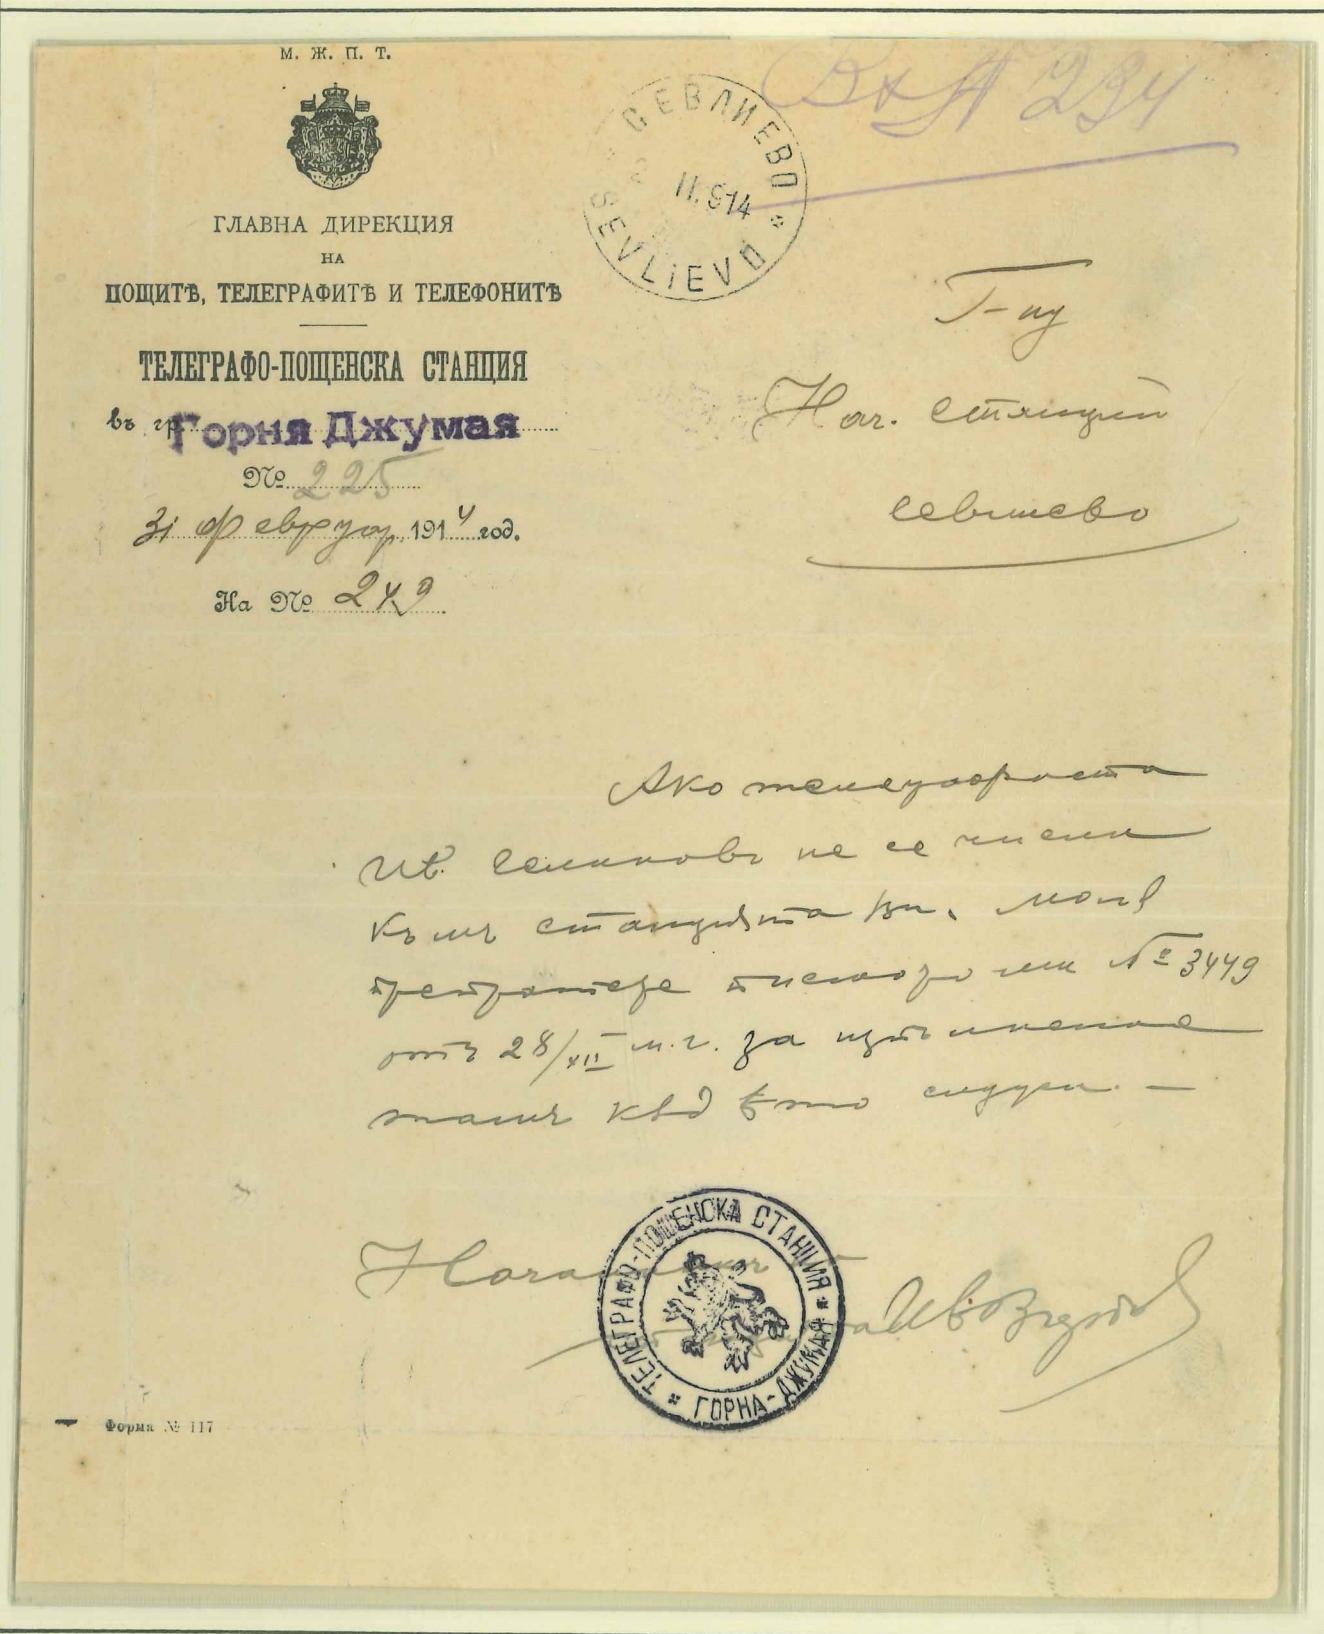 М. Ж. П. Т.
ГЛАВНА ДИРЕКЦИЯ
НА
ПОЩИТѢ, ТЕЛЕГРАФИТѢ И ТЕЛЕФОНИТѢ
ТЕЛЕГРАФО-ПОЩЕНСКА СТАНЦИЯ
въ гр. Горня Джумая
№ 225
31 Февруар 1914 год.
На № 249
СЕВЛИЕВО
II. 914
SEVLIEVO
Вх № 234
Г-ну
Нач. Станция
Севлиево
Ако телеграфиста
Ив. не се числи
къмъ станцията Ви, моля
препратете писмото ми № 3449
отъ 28/XII м.г. за изпълнение
тамъ кѫдѣто следва. —
Началникъ
Ив.
ТЕЛЕГРАФО-ПОЩЕНСКА СТАНЦИЯ
ГОРНА-ДЖУМАЯ
Форма № 117